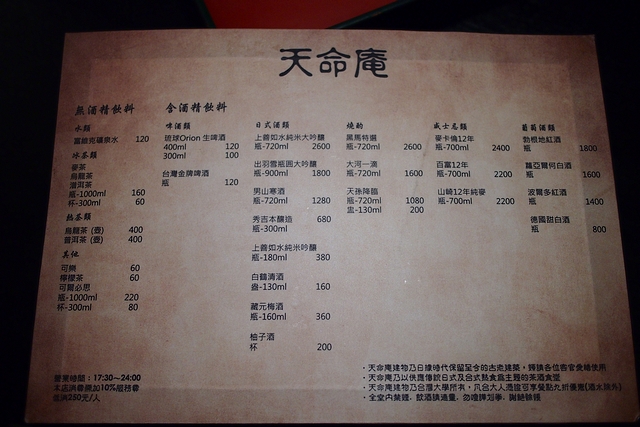 天命庵
無酒精飲料
水類
富維克礦泉水 120
冰茶類
麥茶
烏龍茶
普洱茶
瓶-1000ml 160
杯-300ml 60
熱茶類
烏龍茶 (壺) 400
普洱茶 (壺) 400
其他
可樂 60
檸檬茶 60
可爾必思
瓶-1000ml 220
杯-300ml 80
含酒精飲料
啤酒類
琉球Orion 生啤酒
400ml 120
300ml 100
台灣金牌啤酒
瓶 120
日式酒類
上善如水純米大吟釀
瓶-720ml 2600
出羽雪瓶囲大吟釀
瓶-900ml 1800
男山寒酒
瓶-720ml 1280
秀吉本釀造 680
瓶-300ml
上善如水純米大吟釀
瓶-180ml 380
白鶴清酒
盎-130ml 160
藏元梅酒
瓶-160ml 360
柚子酒
杯 200
燒酌
黑馬特選
瓶-720ml 2600
大河一滴
瓶-720ml 1600
天孫降臨
瓶-720ml 1080
盅-130ml 200
威士忌類
麥卡倫12年
瓶-700ml 2400
百富12年
瓶-700ml 2200
山崎12年純麥
瓶-700ml 2200
葡萄酒類
勃根地紅酒
瓶 1800
蘿亞爾河白酒
瓶 1600
波爾多紅酒
瓶 1400
德國甜白酒
瓶 800
營業時間：17:30~24:00
本店消費需加10%服務費
低消250元/人
・天命庵建物乃日據時代保留至今的古老建築，歸請各位賓客愛惜使用
・天命庵乃以供應傳統日式及台式熟食為主題的茶酒食堂
・天命庵建物乃台灣大學所有，凡台大人憑證可享餐點九折優惠(酒水除外)
・全室內禁菸，飲酒請適量，勿喧嘩划拳，謝絕餘錢